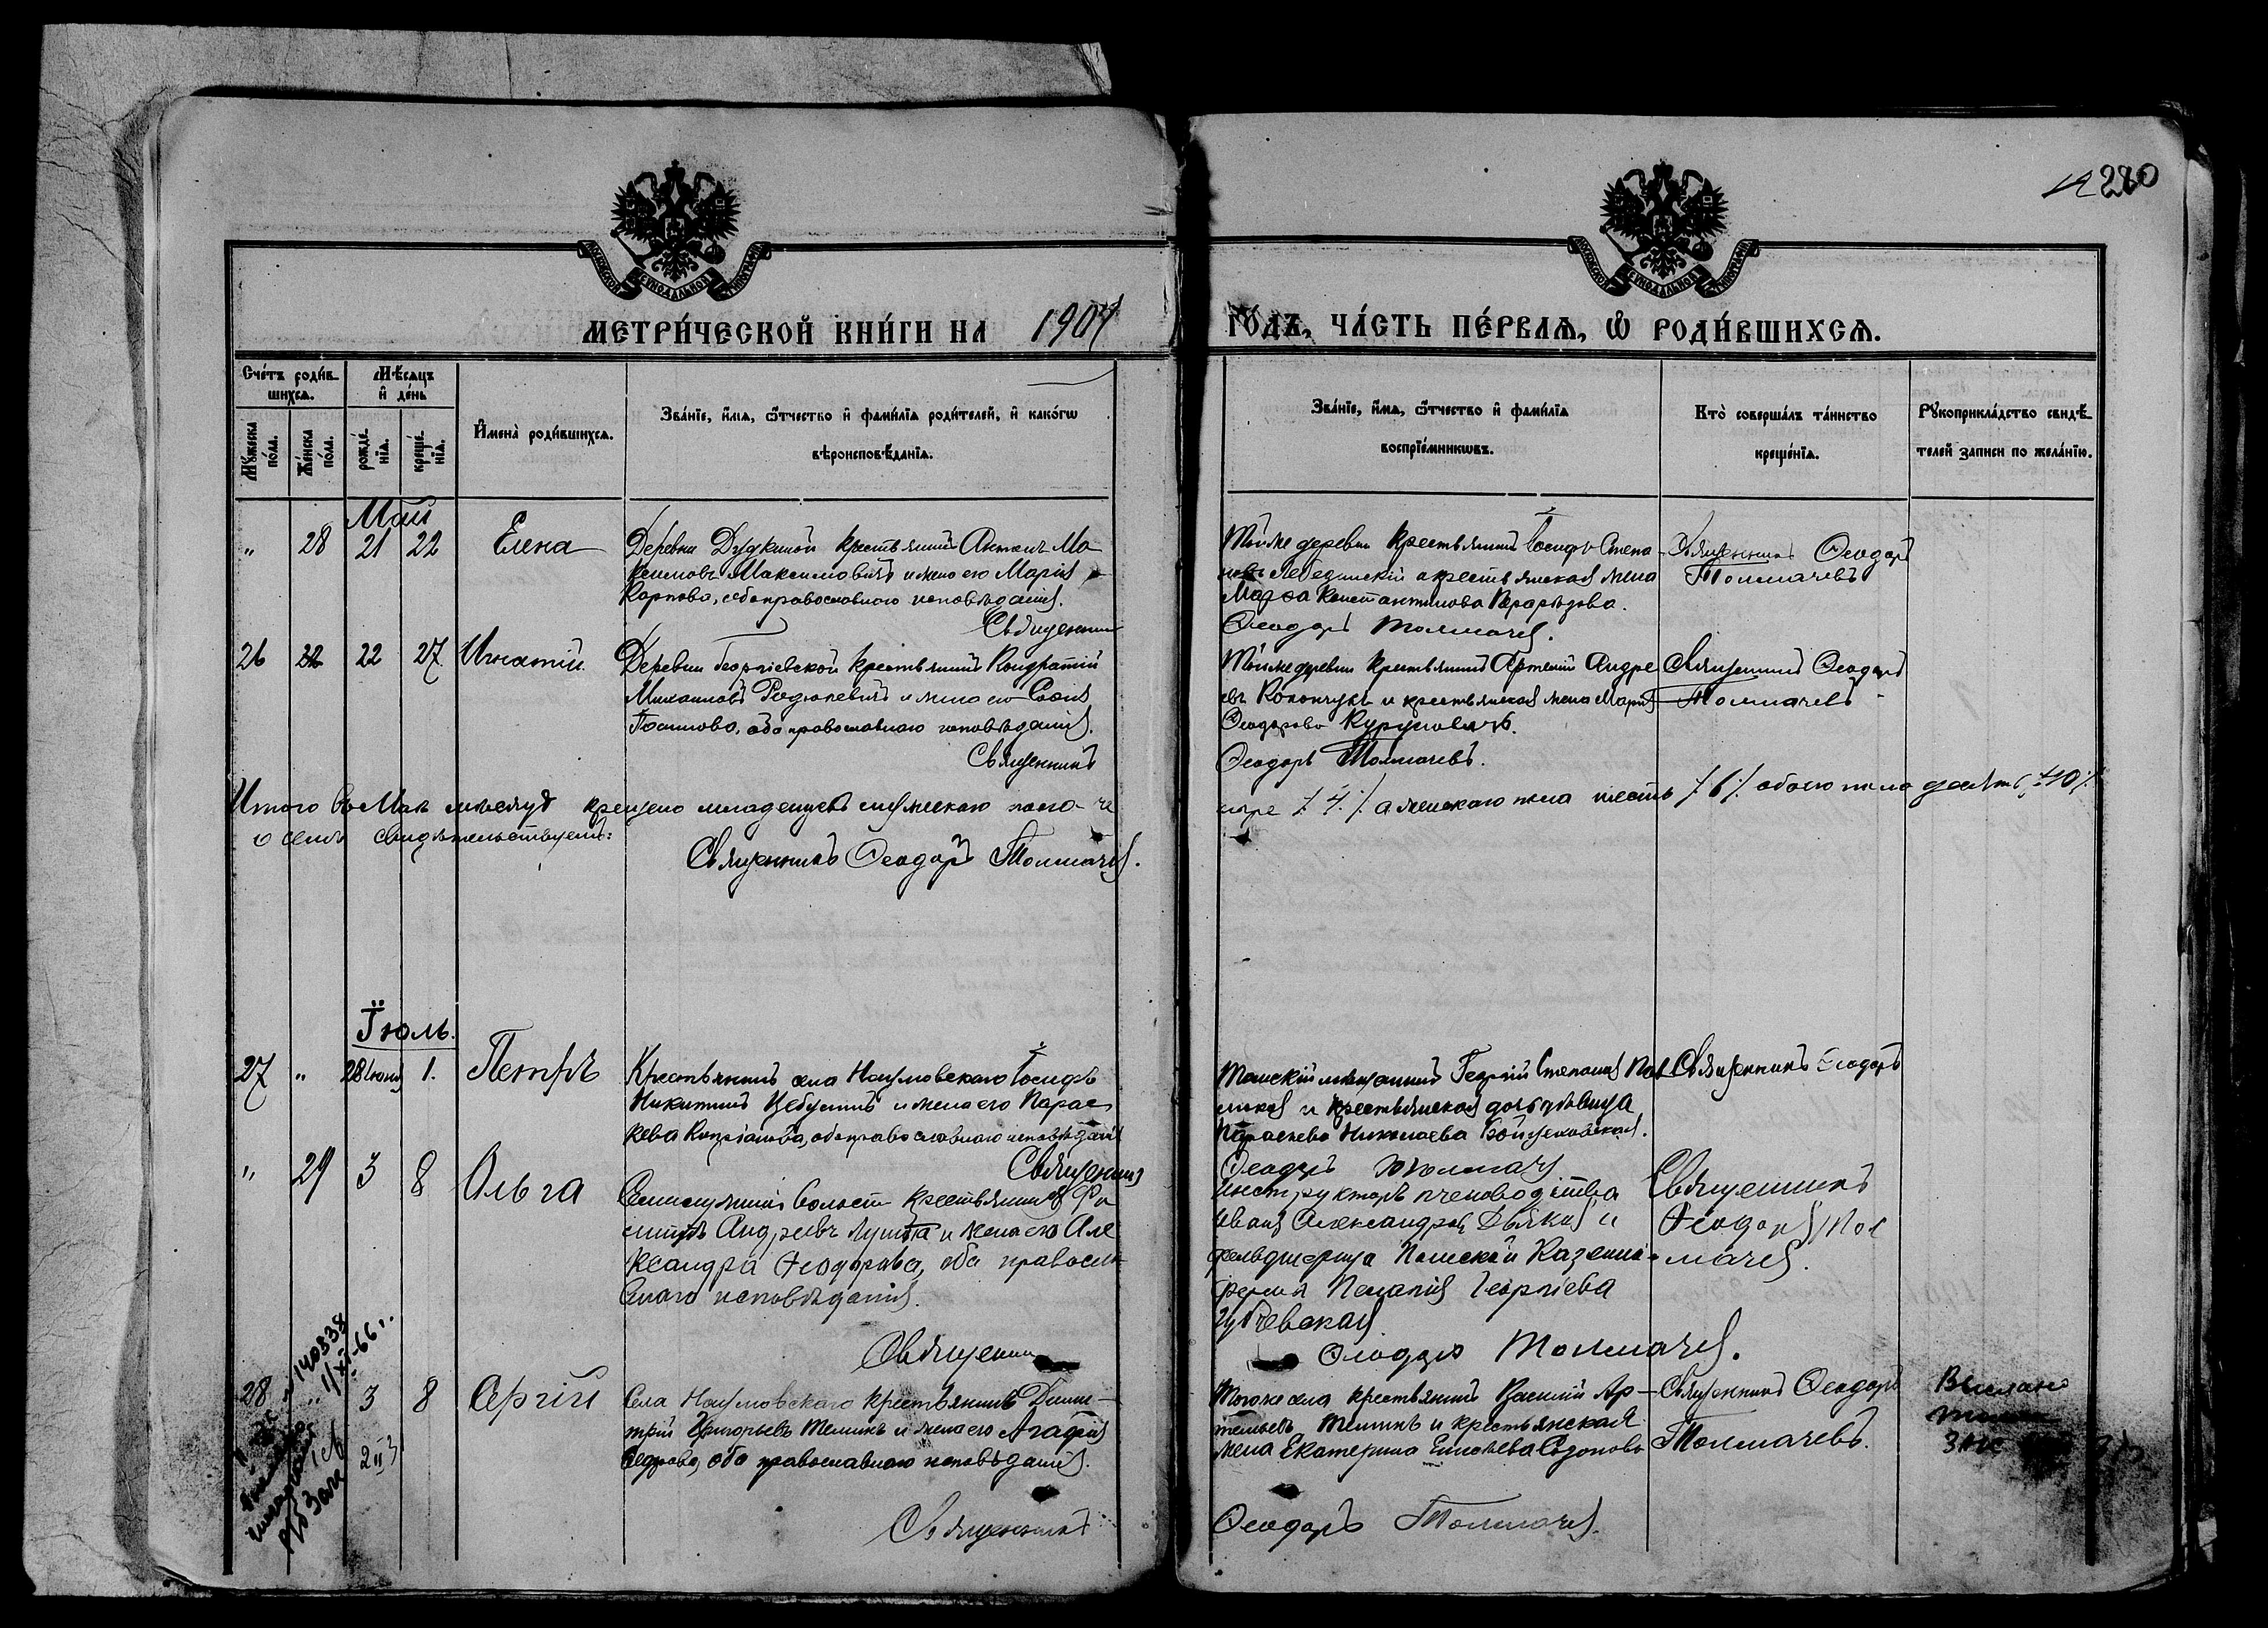 280
МЕТРИ́ЧЕСКОЙ КНИ́ГИ НА 1907
ГО́ДЪ, ЧА́СТЬ ПЕ́РВАѦ, Ѡ҆ РОДИ́ВШИХСѦ.
Сче́тъ роди́в-
шихсѧ.
Мѣ́сѧцъ
и҆ де́нь
Мꙋ́жеска
по́ла.
Же́нска
по́ла.
рожде́-
нїѧ.
креще́-
нїѧ.
И҆мена̀ роди́вшихсѧ.
Зва́нїе, и҆́мѧ, ѻ҆́тчество и҆ фами́лїѧ роди́телей, и҆ како́гѡ
вѣроисповѣ́данїѧ.
Зва́нїе, и҆́мѧ, ѻ҆́тчество и҆ фами́лїѧ
воспрїе́мникѡвъ.
Кто̀ соверша́лъ та́инство
креще́нїѧ.
Рꙋкоприкла́дство свидѣ́-
телей записи по жела́нїю.
Май
" 28 21 22 Елена
Деревни Дудкиной крестьянинъ Антонъ Ма-
ксимовъ Максимовичъ и жена его Марія
Карпова, оба православнаго исповѣданія.
Священникъ
Той же деревни крестьянинъ Іосифъ Степа-
новъ Лебединскій и крестьянская жена
Марѳа Константинова
Ѳеодоръ Толмачевъ.
Священникъ Ѳеодоръ
Толмачевъ
26 22 22 27 Игнатій
Деревни Георгіевской крестьянинъ Кондратій
Михаиловъ Родюкевичъ и жена его Софія
оба православнаго исповѣданія.
Священникъ
Той же деревни крестьянинъ Артемій Андре-
евъ Конончукъ и крестьянская жена Марія
Ѳеодорова
Ѳеодоръ Толмачевъ.
Священникъ Ѳеодоръ
Толмачевъ
Итого въ Маѣ мѣсяцѣ крещено младенцевъ мужескаго пола - че-
тыре / 4 / а женскаго пола шесть / 6 / обоего пола десять / 10 /
о чемъ свидѣтельствуетъ:
Священникъ Ѳеодоръ Толмачевъ.
Іюль.
27 " 28 Іюня 1. Петръ
Крестьянинъ села Наумовскаго Іосифъ
Никитинъ Цебулинъ и жена его Парас-
кева Кипріанова, оба православнаго исповѣданія
Священникъ
Томскій мѣщанинъ Георгій Степановъ
и крестьянская дочь дѣвица
Параскева Николаева Войцеховская.
Ѳеодоръ Толмачевъ
Священникъ Ѳеодоръ
" 29 3 8 Ольга
Семилужной волости крестьянинъ Фи-
липпъ Андреевъ и жена его Але-
ксандра Ѳеодорова, оба правосла-
внаго исповѣданія.
Священникъ
Инструкторъ пчеловодства
Иванъ Александровъ Дьяковъ и
фельдшерица Томской Казенной
фермы Георгіева
Ѳеодоръ Толмачевъ.
Священникъ
Ѳеодоръ Тол-
мачевъ.
28 " 3 8 Сергій
Села Наумовскаго крестьянинъ Дими-
трій Григорьевъ Темикъ и жена его Агафія
оба православнаго исповѣданія.
Священникъ
Того же села крестьянинъ Василій Ар-
темьевъ Темикъ и крестьянская
жена Екатерина
Ѳеодоръ Толмачевъ.
Священникъ Ѳеодоръ
Толмачевъ.
140838
1/XI-66 г.
Выслано